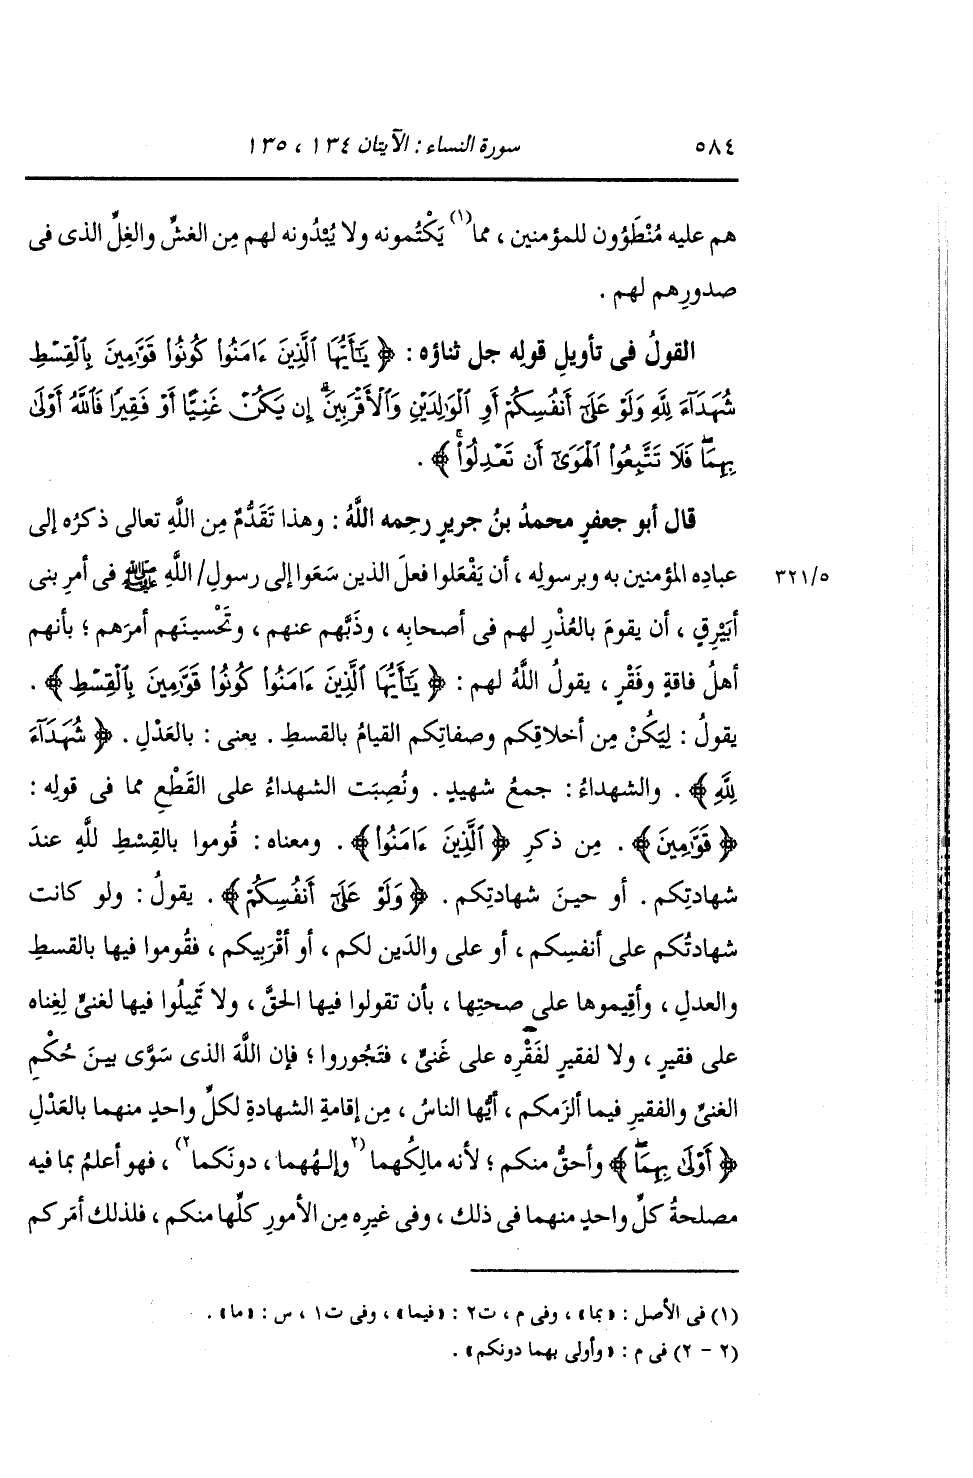 ٥٨٤ سورة النساء : الآيتان ١٣٤ ، ١٣٥
هم عليه مُنْطَوُون للمؤمنين ، مما(١) يَكْتُمونه ولا يُبْدُونه لهم مِن الغشِّ والغِلِّ الذى فى
صدورِهم لهم .
القولُ فى تأويلِ قولِه جل ثناؤه : ﴿ يَٰٓأَيُّهَا ٱلَّذِينَ ءَامَنُوا۟ كُونُوا۟ قَوَّٰمِينَ بِٱلْقِسْطِ
شُهَدَآءَ لِلَّهِ وَلَوْ عَلَىٰٓ أَنفُسِكُمْ أَوِ ٱلْوَٰلِدَيْنِ وَٱلْأَقْرَبِينَ ۚ إِن يَكُنْ غَنِيًّا أَوْ فَقِيرًا فَٱللَّهُ أَوْلَىٰ
بِهِمَا ۖ فَلَا تَتَّبِعُوا۟ ٱلْهَوَىٰٓ أَن تَعْدِلُوا۟ ۚ ﴾ .
قال أبو جعفرٍ محمدُ بنُ جريرٍ رحِمه اللَّهُ : وهذا تَقَدُّمٌ مِن اللَّهِ تعالى ذكرُه إلى
عبادِه المؤمنين به وبرسولِه ، أن يَفْعَلوا فعلَ الذين سَعَوا إلى رسولِ/ اللَّهِ ﷺ فى أمرِ بنى ٣٢١/٥
أُبَيْرِقٍ ، أن يقومَ بالعُذْرِ لهم فى أصحابِه ، وذَبَّهم عنهم ، وتَحْسينَهم أمرَهم ؛ بأنهم
أهلُ فاقةٍ وفَقْرٍ ، يقولُ اللَّهُ لهم : ﴿ يَٰٓأَيُّهَا ٱلَّذِينَ ءَامَنُوا۟ كُونُوا۟ قَوَّٰمِينَ بِٱلْقِسْطِ ﴾ .
يقولُ : لِيَكُنْ مِن أخلاقِكم وصفاتِكم القيامُ بالقسطِ . يعنى : بالعَدْلِ . ﴿ شُهَدَآءَ
لِلَّهِ ﴾ . والشهداءُ : جمعُ شهيدٍ . ونُصِبَت الشهداءُ على القَطْعِ مما فى قولِه :
﴿ قَوَّٰمِينَ ﴾ . مِن ذكرِ ﴿ ٱلَّذِينَ ءَامَنُوا۟ ﴾ . ومعناه : قُوموا بالقِسْطِ للَّهِ عندَ
شهادتِكم . أو حينَ شهادتِكم . ﴿ وَلَوْ عَلَىٰٓ أَنفُسِكُمْ ﴾ . يقولُ : ولو كانت
شهادتُكم على أنفسِكم ، أو على والدَين لكم ، أو أقْرَبِيكم ، فقُوموا فيها بالقسطِ
والعدلِ ، وأقِيموها على صحتِها ، بأن تقولوا فيها الحقَّ ، ولا تَمِيلُوا فيها لغنىٍّ لِغِناه
على فقيرٍ ، ولا لفقيرٍ لفَقْرِه على غَنىٍّ ، فتَجُوروا ؛ فإن اللَّهَ الذى سَوَّى بينَ حُكْمِ
الغنىِّ والفقيرِ فيما ألزَمكم ، أيُّها الناسُ ، مِن إقامةِ الشهادةِ لكلِّ واحدٍ منهما بالعَدْلِ
﴿ أَوْلَىٰ بِهِمَا ۖ ﴾ وأحقُّ منكم ؛ لأنه مالِكُهما (٢وإلـٰهُهما ، دونَكما٢) ، فهو أعلمُ بما فيه
مصلحةُ كلِّ واحدٍ منهما فى ذلك ، وفى غيرِه مِن الأمورِ كلِّها منكم ، فلذلك أمَركم
(١) فى الأصل : «بما» ، وفى م ، ت٢ : «فيما» ، وفى ت١ ، س : «ما» .
(٢ - ٢) فى م : «وأولى بهما دونكم» .